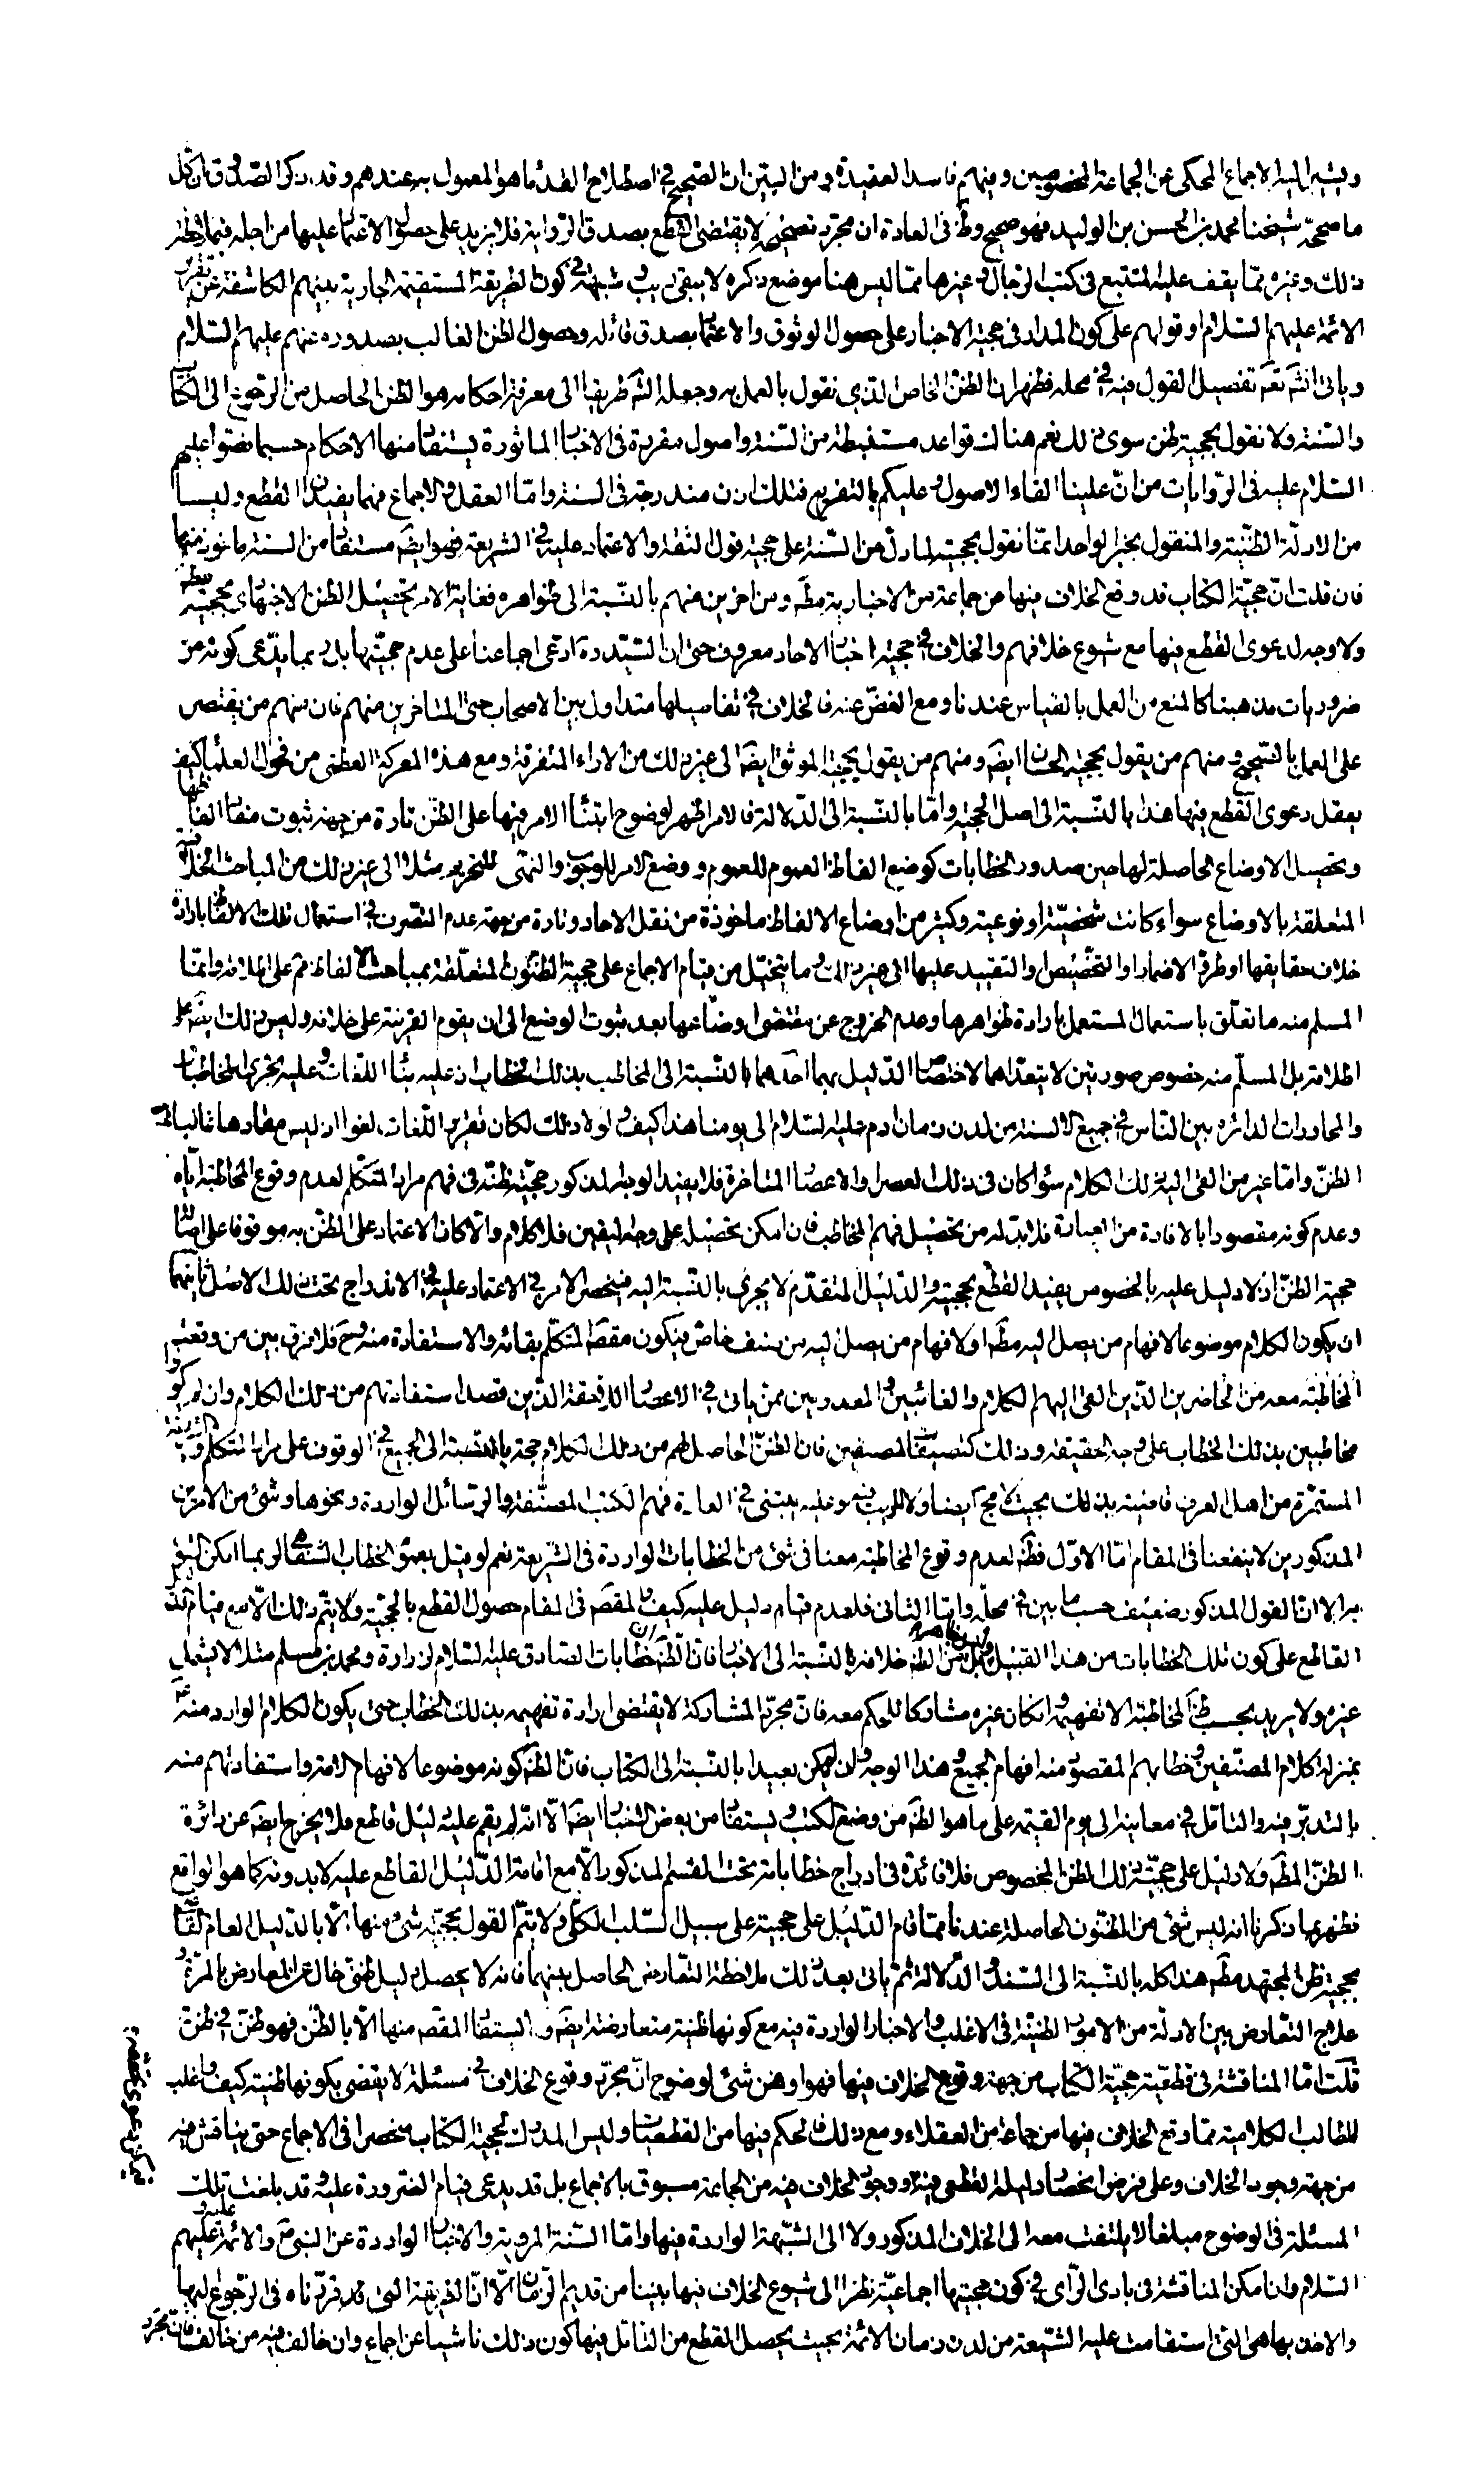 ويشير اليه الاجماع المحكى عن الجماعة المخصوصين ومنهم فاسد العقيدة ومن البين ان الصحيح فى اصطلاح القدماء هو المعمول به عندهم وقد ذكر الصدوق ان كل
ما صححه شيخنا محمد بن الحسن بن الوليد فهو صحيح وظ فى العادة ان مجرد تصحيحه لا يقتضى القطع بصدق الرواية فلا يزيد على حصول الاعتماد عليها من اجله فبملاحظة
ذلك وغيره مما يقف عليه المتتبع فى كتب الرجال وغيرها مما ليس هنا موضع ذكره لا يبقى ريب وشبهة فى كون الطريقة المستقيمة الجارية بينهم الكاشفة عن تقرير
الائمة عليهم السلام او قولهم على كون المدار فى حجية الاخبار على حصول الوثوق والاعتماد بصدق قائله وحصول الظن الغالب بصدوره عنهم عليهم السلام
وياتى انشم تعم تفصيل القول فيه فى محله فظهر ان الظن الخاص الذى نقول بالعمل به وجعله الشم طريقا الى معرفة احكامه هو الظن الحاصل من الرجوع الى الكتاب
والسنة ولا نقول بحجية ظن سوى ذلك نعم هناك قواعد مستنبطة من السنة واصول مقررة فى الاخبار الماثورة يستفاد منها الاحكام حسبما نصوا عليهم
السلام عليه فى الروايات من ان علينا القاء الاصول وعليكم بالتفريع فتلك اذن مندرجة فى السنة واما العقل والاجماع فهما يفيدان القطع وليسا
من الادلة الظنية والمنقول بخبر الواحد انما نقول بحجيته لما دل من السنة على حجية قول الثقة والاعتماد عليه فى الشريعة فهو ايضم مستفاد من السنة ماخوذ منها
فان قلت ان حجية الكتاب قد وقع الخلاف فيها من جماعة من الاخبارية مطم ومن اخرين منهم بالنسبة الى ظواهره فغاية الامر تحصيل الظن الاجتهادى بحجيته مطم
ولا وجه لدعوى القطع فيها مع شيوع خلافهم والخلاف فى حجية اخبار الاحاد معروف حتى ان السيد ره ادعى اجماعنا على عدم حجيتها بل ربما يدعى كونه من
ضروريات مذهبنا كالمنع من العمل بالقياس عندنا ومع الغض عنه فالخلاف فى تفاصيلها متداول بين الاصحاب حتى المتاخرين منهم فان منهم من يقتصر
على العمل بالصحيح ومنهم من يقول بحجية الحسان ايضم ومنهم من يقول بحجية الموثق ايضم الى غير ذلك من الاراء المتفرقة ومع هذه المعركة العظمى من فحول العلماء كيف
يعقل دعوى القطع فيها هذا بالنسبة الى اصل الحجية واما بالنسبة الى الدلالة فالامر اظهر لوضوح ابتناء الامر فيها على الظن تارة من جهة ثبوت مفاد الفاظها
وتحصيل الاوضاع الحاصلة لها حين صدور الخطابات كوضع الفاظ العموم للعموم ووضع الامر للوجوب والنهى للتحريم مثلا الى غير ذلك من المباحث الخلافية
المتعلقة بالاوضاع سواء كانت شخصية او نوعية وكثير من اوضاع الالفاظ ماخوذة من نقل الاحاد وتارة من جهة عدم التصرف فى استعمال تلك الالفاظ بارادة
خلاف حقايقها او طرو الاضمار او التخصيص او التقييد عليها الى غير ذلك وما يتخيل من قيام الاجماع على حجية الظنون المتعلقة بمباحث الالفاظ فم على اطلاقه وانما
المسلم منه ما تعلق باستعمال المستعمل بارادة ظواهرها وعدم الخروج عن مقتضى اوضاعها بعد ثبوت الوضع الى ان يقوم القرينة على خلافه وليس ذلك ايضم على
اطلاقه بل المسلم منه خصوص صورتين لا يتعداهما لاختصاص الدليل بهما احدهما بالنسبة الى المخاطب بذلك الخطاب اذ عليه بناء اللغات وعليه يجرى المخاطبات
والمحاورات الدائرة بين الناس فى جميع الالسنة من لدن زمان ادم عليه السلام الى يومنا هذا كيف ولولا ذلك لكان تقرير اللغات لغوا اذ ليس مفادها غالبا الا
الظن واما غير من القى اليه ذلك الكلام سواء كان فى ذلك العصر او الاعصار المتاخرة فلا يفيد الوجه المذكور حجية ظنه فى فهم مراد المتكلم لعدم وقوع المخاطبة اياه
وعدم كونه مقصودا بالافادة من العبارة فلابد له من تحصيل فهم المخاطب فان امكن تحصيله على وجه اليقين فلا كلام والا كان الاعتماد على الظن به موقوفا على اصالة
حجية الظن اذ لا دليل عليه بالخصوص يفيد القطع بحجيته والدليل المتقدم لا يجرى بالنسبة اليه فينحصر الامر فى الاعتماد عليه فى الاندراج تحت ذلك الاصل ثانيهما
ان يكون الكلام موضوعا لافهام من يصل اليه مطم او لافهام من يصل اليه من صنف خاص فيكون مقصم المتكلم بقائه والاستفادة منه وح فلا فرق بين من وقعت
المخاطبة معه من الحاضرين الذين القى اليهم الكلام والغائبين والمعدومين ممن ياتى فى الاعصار اللاحقة الذين قصد استفادتهم من ذلك الكلام وان لم يكونوا
مخاطبين بذلك الخطاب على وجه الحقيقة وذلك كتصنيفات المصنفين فان الظن الحاصل لهم من ذلك الكلام حجة بالنسبة الى الجميع فى الوقوف على مراد المتكلم والطريقة
المستمرة من اهل العرف قاضية بذلك بحيث لا مجال ايضا للريب فيه وعليه يبتنى فى العادة فهم الكتب المصنفة والرسائل الواردة ونحوها وشئ من الامرين
المذكورين لا ينفعنا فى المقام اما الاول فظم لعدم وقوع المخاطبة معنا فى شئ من الخطابات الواردة فى الشريعة نعم لو قيل بعموم الخطاب الشفاهى لربما امكن القول
به الا ان القول المذكور ضعيف حسب ما بين فى محله واما الثانى فلعدم قيام دليل عليه كيف والمقصم فى المقام حصول القطع بالحجية ولا يتم ذلك الا مع قيام الدليل
القاطع على كون تلك الخطابات من هذا القبيل بل من الظم خلافه بالنسبة الى الاخبار فان الظم خطابات الصادق عليه السلام لزرارة ومحمد بن مسلم مثلا لا يشمل
غيره ولا يريد بحسب ظم المخاطبة الا تفهيمه وان كان غيره مشاركا للحكم معه فان مجرد المشاركة لا يقتضى ارادة تفهيمه بذلك الخطاب حتى يكون الكلام الوارد منه عم
بمنزلة كلام المصنفين وخطابهم المقصود منه افهام الجميع وهذا الوجه وان لم يكن بعيدا بالنسبة الى الكتاب فان الظم كونه موضوعا لافهام الامة واستفادتهم منه
بالتدبر فيه والتامل فى معانيه الى يوم القيمة على ما هو الظم من وضع الكتب ويستفاد من بعض الاخبار ايضم الا انه لم يقم عليه دليل قاطع فلا يخرج ايضم عن دائرة
الظن المطم ولا دليل على حجية ذلك الظن بالخصوص فلا فائدة فى ادراج خطاباته تحت القسم المذكور الا مع اقامة الدليل القاطع عليه لا بدونه كما هو الواقع
فظهر بما ذكرنا انه ليس شئ من الظنون الحاصلة عندنا مما قام الدليل على حجيته على سبيل السلب الكلى ولا يتم القول بحجية شئ منها الا بالدليل العام القاضى
بحجية ظن المجتهد مطم هذا كله بالنسبة الى السند والدلالة ثم ياتى بعد ذلك ملاحظة التعارض الحاصل بينهما فانه لا يحصل دليل ظنى خال عن المعارض بالمرة و
علاج التعارض بين الادلة من الامور الظنية فى الاغلب والاخبار الواردة فيه مع كونها ظنية متعارضة ايضم ولا يستفاد المقصم منها الا بالظن فهو ظن فى ظن
قلت اما المناقشة فى قطعية حجية الكتاب من جهة وقوع الخلاف فيها فهو اوهن شئ لوضوح ان مجرد وقوع الخلاف فى مسئلة لا يقضى بكونها ظنية كيف واغلب
المطالب الكلامية مما وقع الخلاف فيها من جماعة من العقلاء ومع ذلك فالحكم فيها من القطعيات وليس المدرك لحجية الكتاب منحصرا فى الاجماع حتى يناقش فيه
من جهة وجود الخلاف وعلى فرض انحصار دليله القطعى فيه ووجود الخلاف فيه من الجماعة مسبوق بالاجماع بل قد يدعى قيام الضرورة عليه وقد بلغت تلك
المسئلة فى الوضوح مبلغا لا يلتفت معه الى الخلاف المذكور ولا الى الشبهة الواردة فيها واما السنة المروية والاخبار الواردة عن النبى ص والائمة عليه وعليهم
السلام وان امكن المناقشة فى بادى الراى فى كون حجيتها اجماعية نظرا الى شيوع الخلاف فيها بيننا من قديم الزمان الا ان الطريقة التى قد قررناه فى الرجوع اليها
والاخذ بها هى التى استقامت عليه الشيعة من لدن زمان الائمة بحيث يحصل القطع من التامل فيها كون ذلك ناشيا عن اجماع وان خالف فيه من خالف فان مجرد